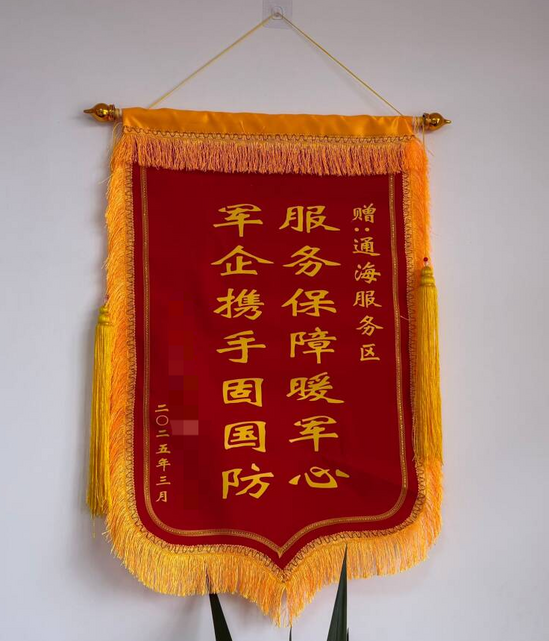 赠:通海服务区
服务保障暖军心
军企携手固国防
二〇二五年三月